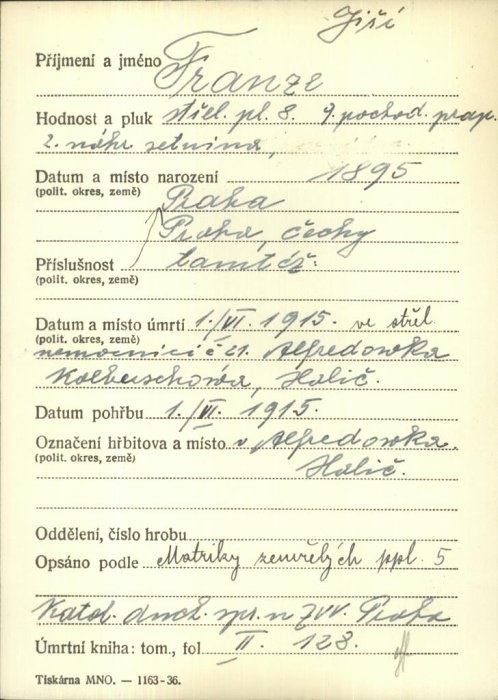 Jiří
Příjmení a jméno Franze
Hodnost a pluk střel. pl. 8. 9. pochod. prap.
2. náhr. setnina,
Datum a místo narození 1895
(polit. okres, země) Praha
Praha, čechy
Příslušnost tamtéž.
(polit. okres, země)
Datum a místo úmrtí 1./VI. 1915. ve střel.
(polit. okres, země)
nemocnici č 21. Alfredowka
Kolberschowa, Halič.
Datum pohřbu 1./VI. 1915.
Označení hřbitova a místo v Alfredowka.
(polit. okres, země)
Halič.
Oddělení, číslo hrobu
Opsáno podle Matriky zemřelých ppl. 5
Katol. duch. spr. n ZVV. Praha
Úmrtní kniha: tom., fol II. 128.
Tiskárna MNO. — 1163-36.